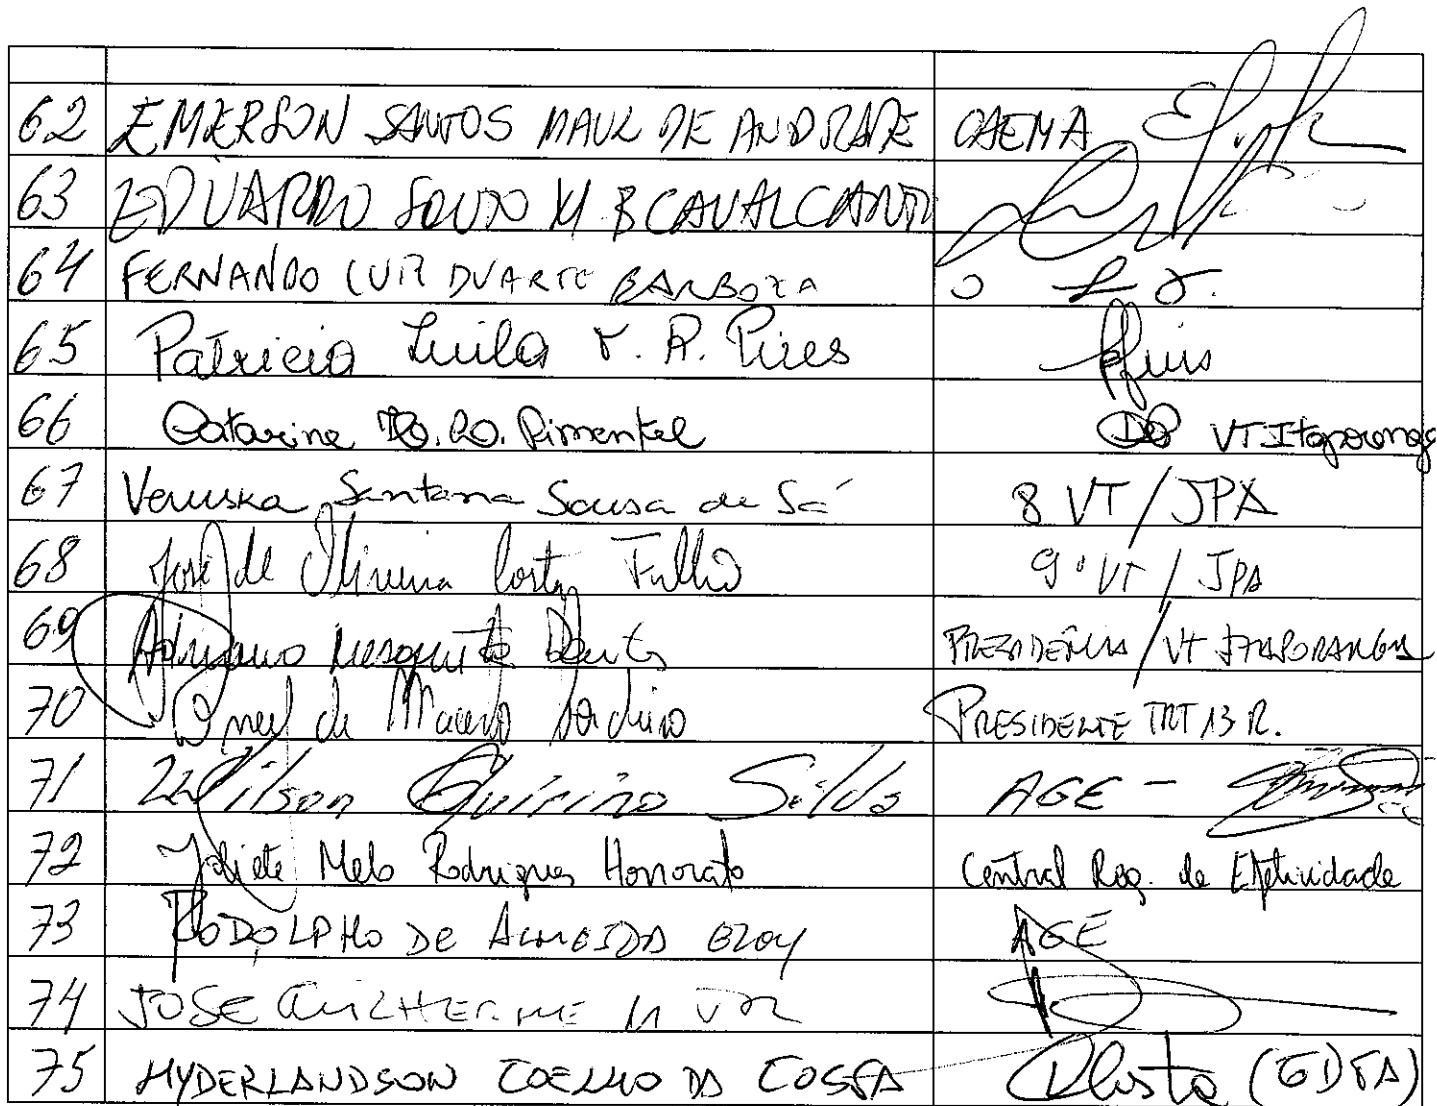 62 EMERSON SANTOS MAUL DE ANDRADE CAEMA
63 EDUARDO SOUTO M B CAVALCANTI
64 FERNANDO LUIZ DUARTE BARBOZA
65 Patricia Luila F. A. Pires
66 Catarine Pimentel VT Itaporanga
67 Veruska Santana Sousa de Sá 8 VT / JPA
68 José de Oliveira Costa Filho 9ª VT / JPA
69 Adriano Mesquita Dantas PRESIDÊNCIA / VT ITAPORANGA
70 de Macedo PRESIDENTE TRT 13 R.
71 Wilson Quirino Silda AGE -
72 Joliete Melo Rodrigues Honorato Central Reg. de Efetividade
73 RODOLPHO DE ALMEIDA ELOY AGE
74 JOSE GUILHERME M
75 HYDERLANDSON COELHO DA COSTA Costa